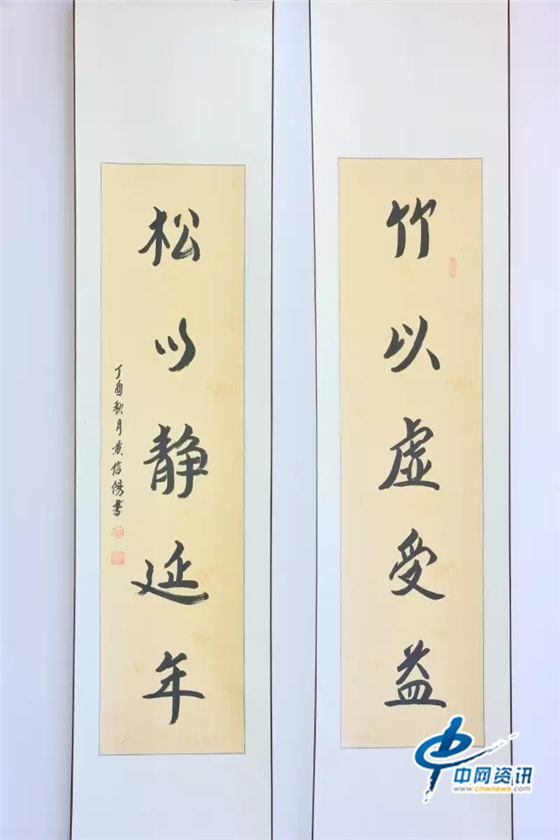 竹以虚受益
松以静延年
丁酉秋月黄信优书
中网资讯
www.cnwnews.com